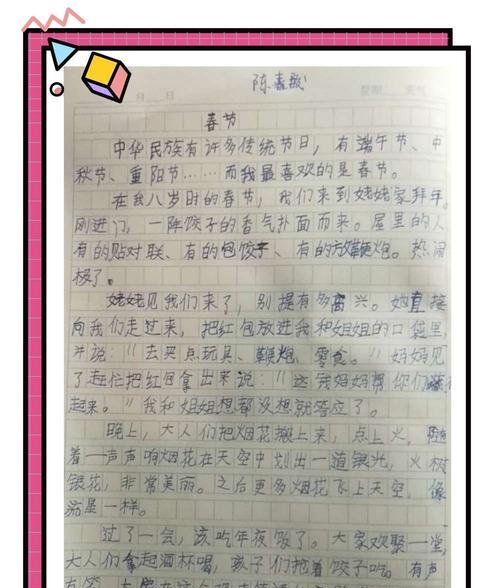 陈嘉
月 日 星期 天气
春节
中华民族有许多传统节日，有端午节、中
秋节、重阳节……而我最喜欢的是春节。
在我八岁时的春节，我们来到姥姥家拜年。
刚进门，一阵饺子的香气扑面而来。屋里的人
有的贴对联、有的包饺子、有的放鞭炮。热闹
极了。
姥姥见我们来了，别提有多高兴。她直接
向我们走过来，把红包放进我和姐姐的口袋里，
并说："去买点玩具、鞭炮、零食。"妈妈见
了赶忙把红包拿出来说："这钱妈妈帮你们藏
起来。"我和姐姐想都没想就答应了。
晚上，大人们把烟花搬上来，点上火，随
着一声声响烟花在天空中划出一道银光，火树
银花，非常美丽。之后更多烟花飞上天空，像
流星一样。
过了一会，该吃年夜饭了。大家欢聚一堂，
大人们拿起酒杯喝，孩子们抱着饺子吃。有声